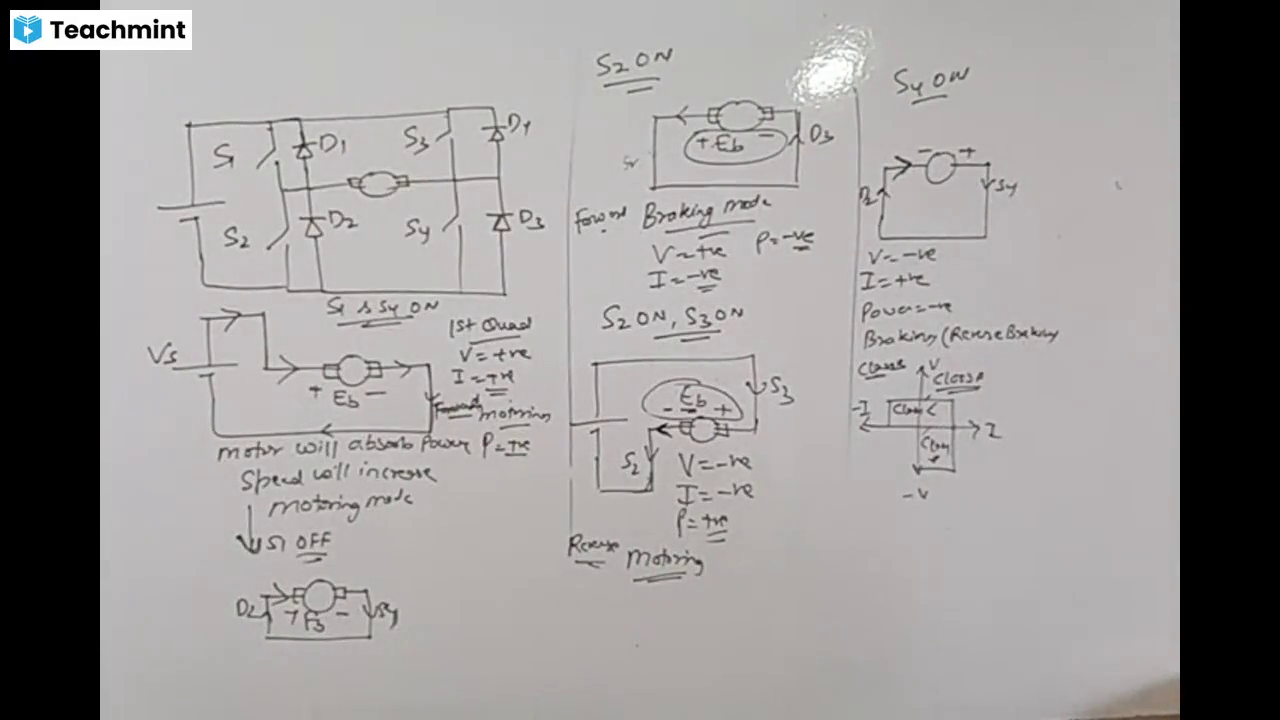 Teachmint
S1
D1
S3
D4
S2
D2
S4
D3
S1 & S4 ON
Vs
+ Eb -
1st Quad
V = +ve
I = +ve
Forward Motoring
Motor will absorb Power P = +ve
Speed will increase
Motoring mode
S1 OFF
D2
+ Eb -
S4
S2 ON
+ Eb -
D3
Forward Braking mode
V = +ve
P = -ve
I = -ve
S2 ON, S3 ON
Eb
- +
S3
S2
V = -ve
I = -ve
P = +ve
Reverse Motoring
S4 ON
- +
D2
S4
V = -ve
I = +ve
Power = -ve
Braking (Reverse Braking
V
Class A
-I
Class
I
Class
-V